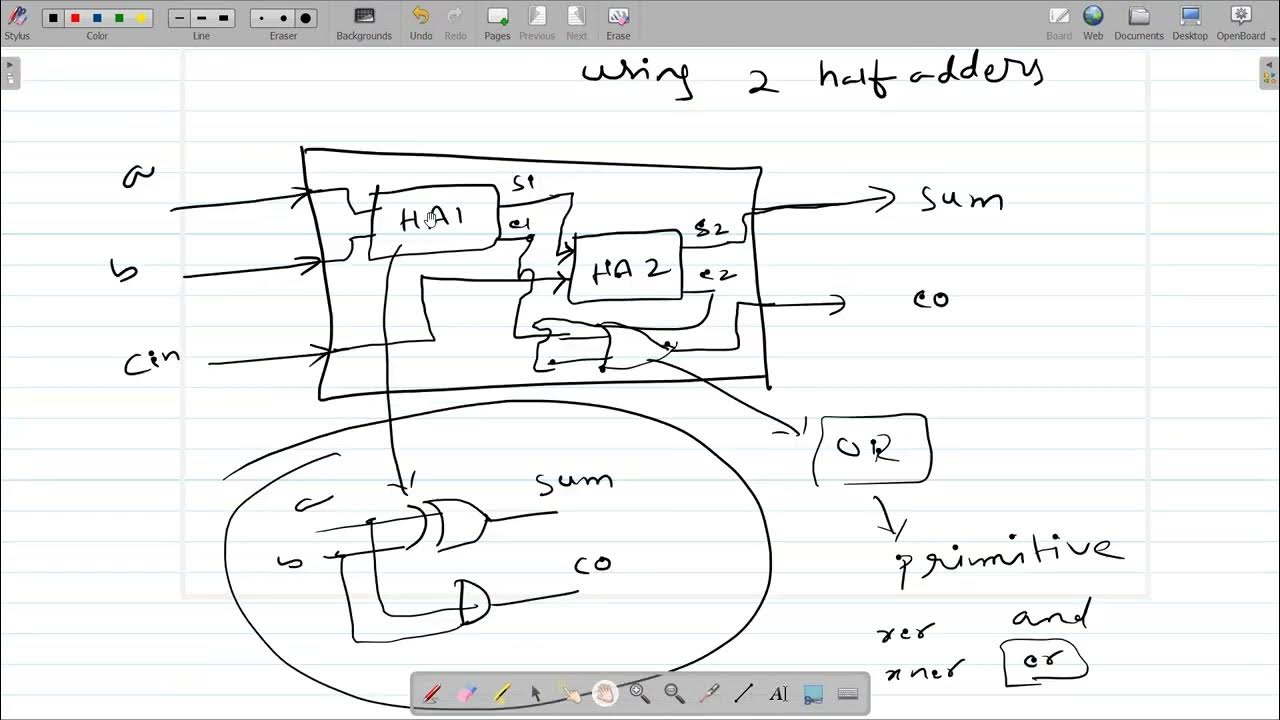 Stylus Color Line Eraser Backgrounds Undo Redo Pages Previous Next Erase Board Web Documents Desktop OpenBoard
using 2 half adders
a
b
cin
HA1
S1
c1
HA2
S2
c2
sum
co
OR
a
b
sum
co
primitive
xor
and
xnor
or
AI